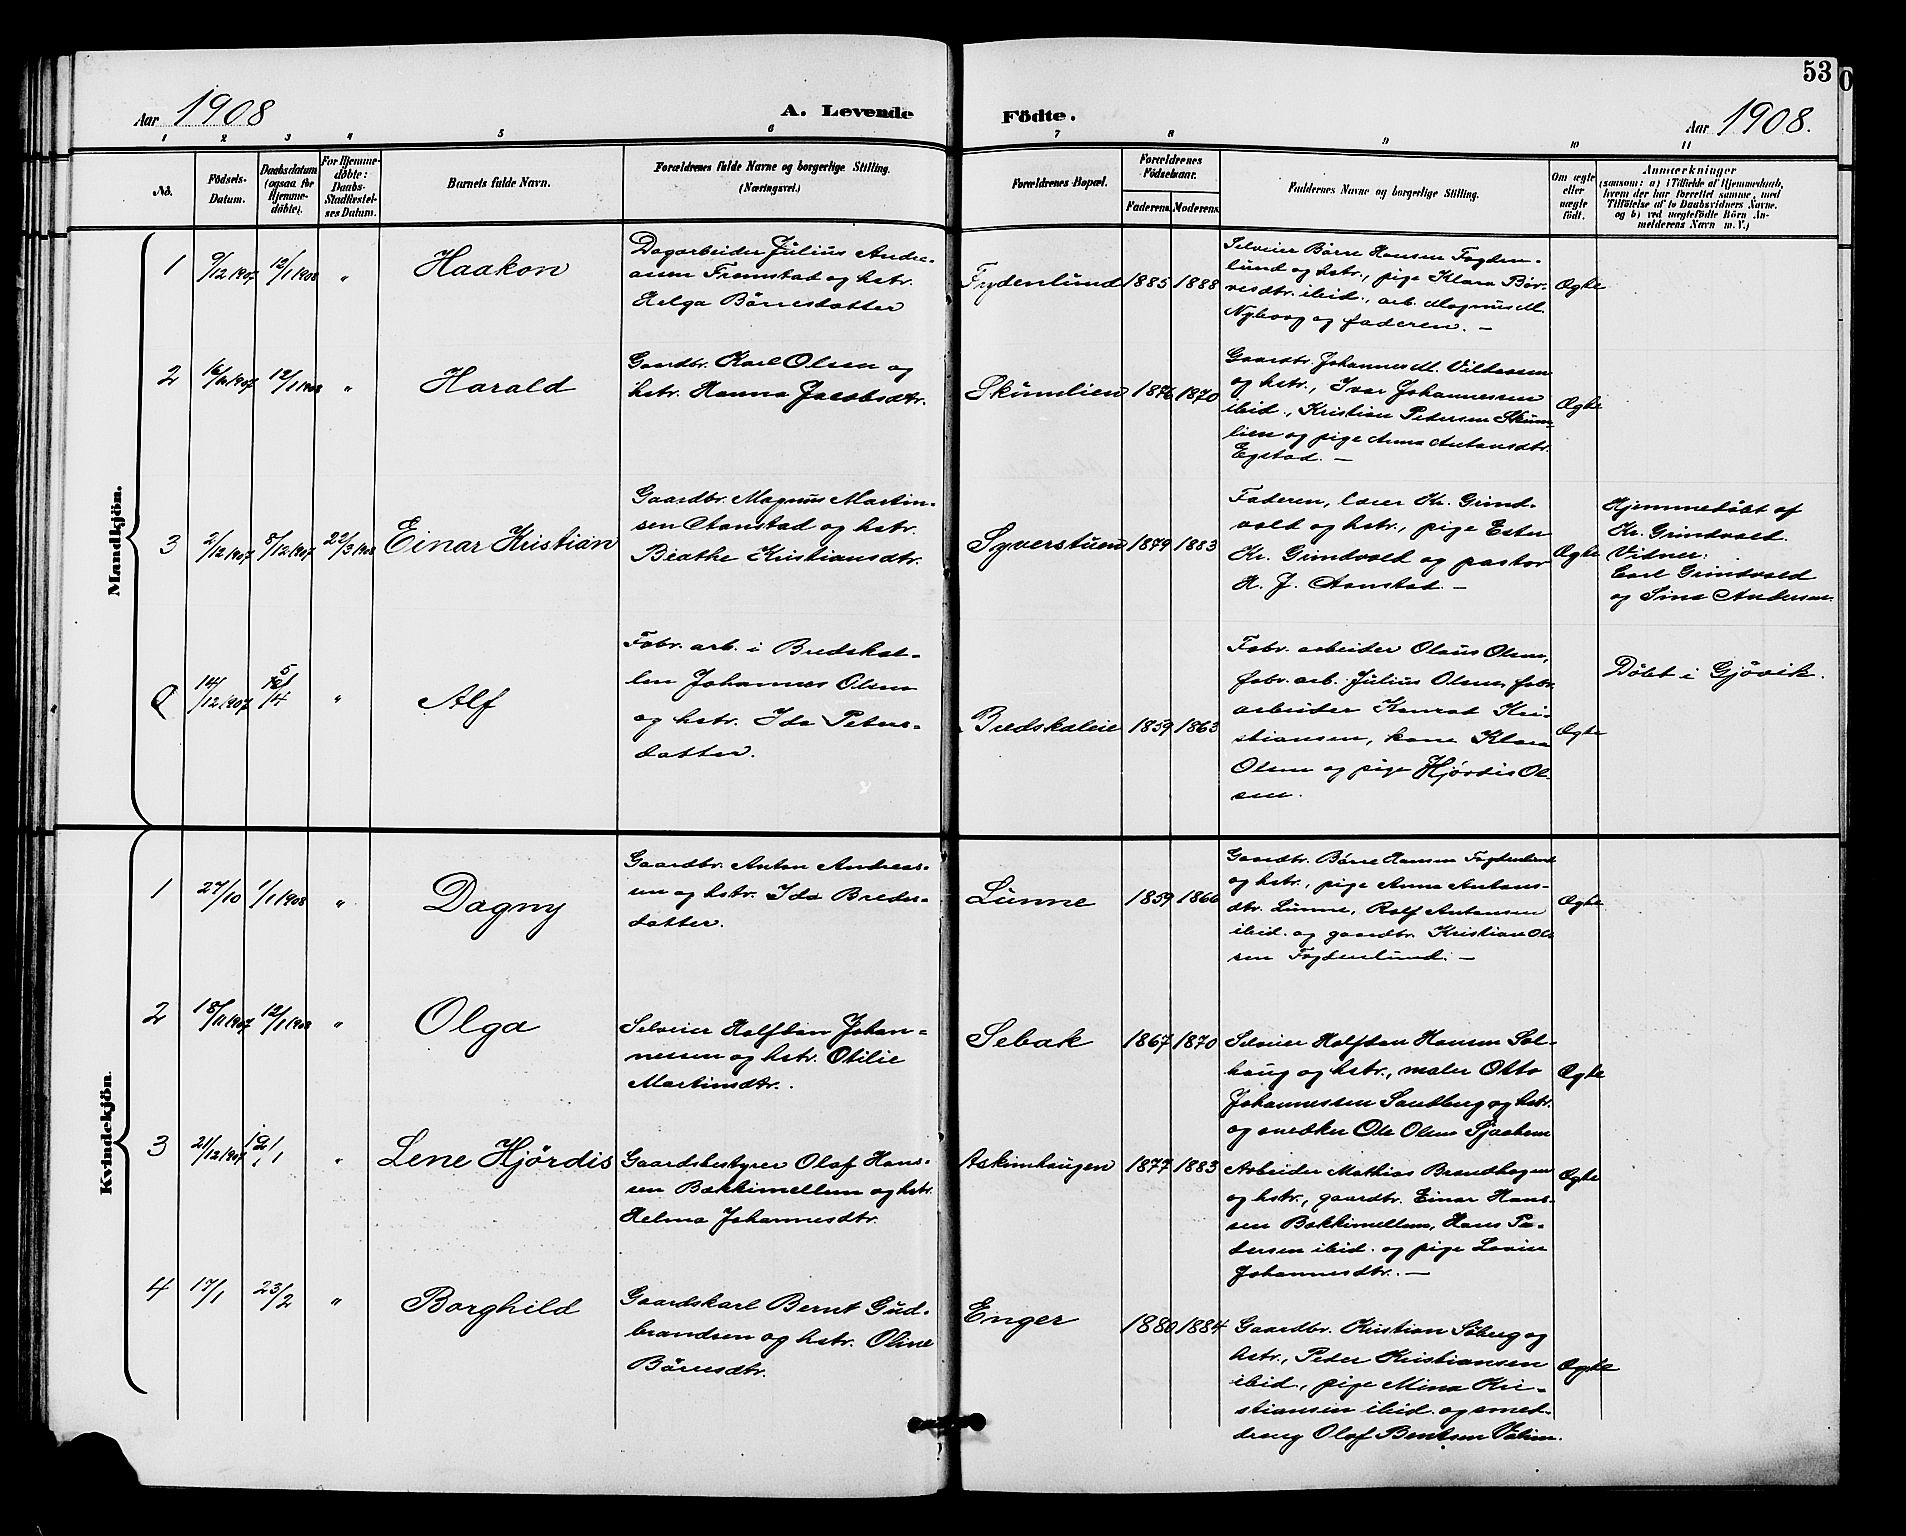 53
Aar 1908
A. Levende
Födte.
Aar 1908.
1 2 3 4 5 6 7 8 9 10 11
No.
Födsels-
Datum.
Daabsdatum
(ogsaa for
Hjemme-
döbte).
For Hjemme-
döbte:
Daabs-
Stadfæstel-
ses Datum.
Barnets fulde Navn.
Forældrenes fulde Navne og borgerlige Stilling.
(Næringsvei.)
Forældrenes Bopæl.
Forældrenes
Födselsaar.
Faderens. Moderens.
Faddernes Navne og borgerlige Stilling.
Om ægte
eller
uægte
födt.
Anmærkninger
(saasom: a) i Tilfælde af Hjemmedaab,
hvem der har forrettet samme, med
Tilföielse af to Daabsvidners Navne,
og b) ved uægtefödte Börn An-
melderens Navn m. V.)
Mandkjön.
1
9/12 1907
12/1 1908
"
Haakon
Dagarbeider Julius Andre-
asen Fremstad og hstr.
Helga Börresdatter
Frydenlund
1885
1888
Selveier Börre Hansen Fryden-
lund og hstr., pige Klara Bör-
resdtr. ibid., arb. Magnus M.
Nyborg og faderen. —
Ægte
2
16/11 1907
12/1 1908
"
Harald
Gaardbr. Karl Olsen og
hstr. Hanna Jacobsdtr.
Skumlien
1876
1870
Gaardbr. Johannes M. Vilhassen
og hstr., Ivar Johannessen
ibid., Kristian Pedersen Skum-
lien og pige Anna Antonsdtr.
Egstad. —
Ægte
3
2/12 1907
8/12 1907
22/3 1908
Einar Kristian
Gaardbr. Magnus Martin-
sen Aanstad og hstr.
Beathe Kristiansdtr.
Syverstuen
1879
1883
Faderen, lærer Kr. Grind-
vold og hstr., pige Ester
Kr. Grindvold og pastor
H. J. Aanstad. —
Ægte
Hjemmedöbt af
Kr. Grindvold.
Vidner:
Carl Grindvold
og Sina Andersen.
14/12 1907
5/4
"
Alf
Fabr. arb. i Bredskal-
len Johannes Olsen
og hstr. Ida Peters-
datter.
Bredskaleie
1859
1863
Fabr. arbeider Olaus Olsen,
fabr. arb. Julius Olsen, fabr.
arbeider Konrad Kri-
stiansen, kone Klara
Olsen og pige Hjördis Ol-
sen.
Ægte
Döbt i Gjövik.
Kvindekjön.
1
27/10
1/1 1908
"
Dagny
Gaardbr. Anton Andreas-
sen og hstr. Ida Bredes-
datter.
Lunne
1859
1866
Gaardbr. Börre Hansen Frydenlund
og hstr., pige Anna Antons-
dtr. Lunne, Rolf Antonsen
ibid. og gaardbr. Kristian Ol-
sen Frydenlund. —
Ægte
2
18/11 1907
12/1 1908
"
Olga
Selveier Halfdan Johan-
nessen og hstr. Otilie
Martinsdtr.
Sebak
1867
1870
Selveier Halfdan Hansen Sol-
haug og hstr., maler Otto
Johannessen Sandberg og hstr.
og snedker Ole Olsen
Ægte
3
21/12 1907
12/1
"
Lene Hjördis
Gaardsbestyrer Olaf Han-
sen Bakkimellum og hstr.
Helma Johannesdtr.
Askimhaugen
1877
1883
Arbeider Mathias Brandhagen
og hstr., gaardbr. Einar Han-
sen Bakkimellum, Hans Pe-
dersen ibid. og pige Lovise
Johannesdtr. —
Ægte
4
17/1
23/2
"
Borghild
Gaardskarl Bernt Gud-
brandsen og hstr. Oline
Börresdtr.
Enger
1880
1884
Gaardbr. Kristian Söberg og
hstr., Peder Kristiansen
ibid., pige Mina Kri-
stiansen ibid. og smed-
dreng Olaf Berntsen
Ægte